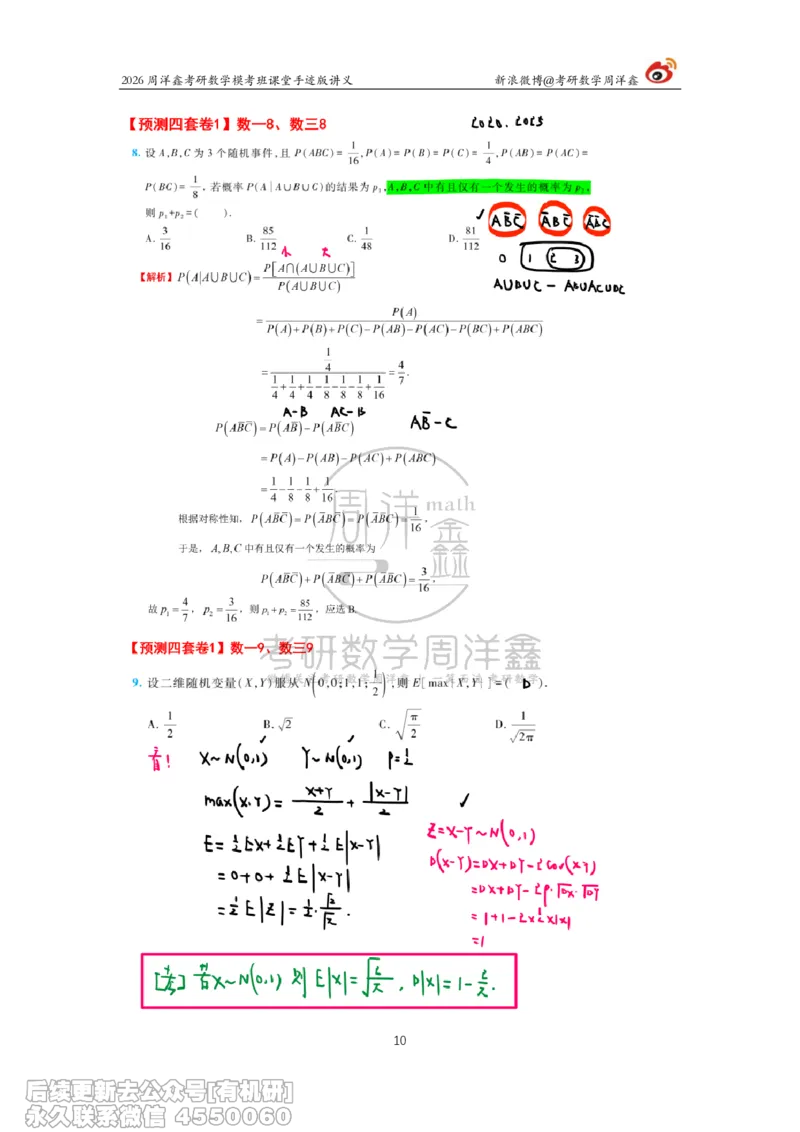 2026 周洋鑫考研数学模考班课堂手迹版讲义 新浪微博@考研数学周洋鑫
【预测四套卷1】数一8、数三8 2020. 2025
8. 设 A,B,C 为 3 个随机事件,且 P(ABC)=1/16, P(A)=P(B)=P(C)=1/4, P(AB)=P(AC)=
P(BC)=1/8, 若概率 P(A|A∪B∪C)的结果为 p₁, A,B,C 中有且仅有一个发生的概率为 p₂,
则 p₁+p₂=( ).
AB̄C̄ ĀBC̄ ĀB̄C
A. 3/16 B. 85/112 C. 1/48 D. 81/112
0 1 2 3
小 大
AUBUC - ABUACUBC
【解析】P(A|A∪B∪C)=P[A∩(A∪B∪C)]/P(A∪B∪C)
=P(A)/(P(A)+P(B)+P(C)-P(AB)-P(AC)-P(BC)+P(ABC))
=(1/4)/(1/4+1/4+1/4-1/8-1/8-1/8+1/16)=4/7.
A-B AC-B
P(AB̄C̄)=P(AB̄)-P(AB̄C) AB̄-C
=P(A)-P(AB)-P(AC)+P(ABC)
=1/4-1/8-1/8+1/16.
根据对称性知, P(AB̄C̄)=P(ĀBC̄)=P(ĀB̄C)=1/16,
于是, A,B,C 中有且仅有一个发生的概率为
P(AB̄C̄)+P(ĀBC̄)+P(ĀB̄C)=3/16,
故 p₁=4/7, p₂=3/16, 则 p₁+p₂=85/112, 应选 B.
周洋鑫 math
考研数学周洋鑫
【预测四套卷1】数一9、数三9
9. 设二维随机变量(X,Y)服从 N(0,0;1,1;1/2),则 E[max{X,Y}]=( D ).
A. 1/2 B. √2 C. √(π/2) D. 1/√(2π)
X~N(0,1) Y~N(0,1) ρ=1/2
max(X,Y)=(X+Y)/2+|X-Y|/2
Z=X-Y~N(0,1)
E=1/2EX+1/2EY+1/2E|X-Y|
D(X-Y)=DX+DY-2Cov(X,Y)
=0+0+1/2E|X-Y|
=DX+DY-2ρ·√DX·√DY
=1/2E|Z|=1/2·√2/√π.
=1+1-2×1/2×1×1
=1
若X~N(0,1) 则 E|X|=√(2/π), D|X|=1-2/π.
10
后续更新去公众号[有机研]
永久联系微信 4550060